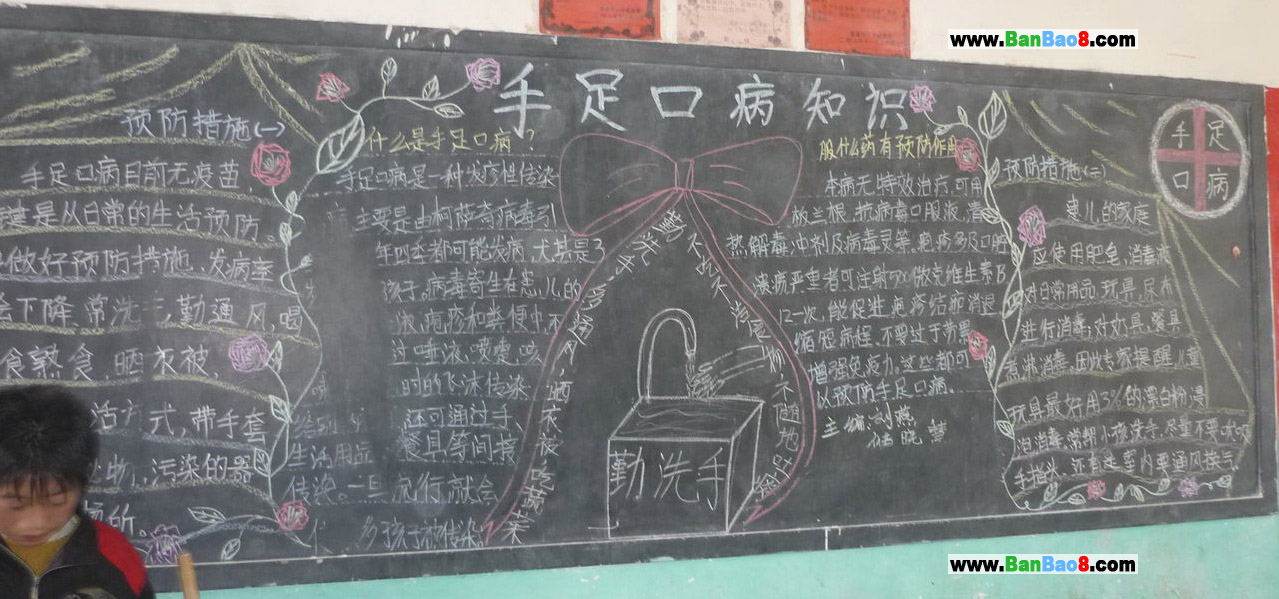 www.BanBao8.com
手足口病知识
预防措施(一)
手足口病目前无疫苗,
键是从日常的生活预防、
做好预防措施、发病率
会下降、常洗手,勤通风,喝
食熟食、晒衣被、
活方式,带手套
物、污染的器
场所。
什么是手足口病?
手足口病是一种发疹性传染
主要是由柯萨奇病毒引
年四季都可能发病,尤其是3
孩子。病毒寄生在患儿的
液、疱疹和粪便中、不
过唾液、喷嚏、咳
时的飞沫传染
还可通过手、
生活用品 餐具等间接
传染。一旦流行就会
多孩子被传染
勤洗手、多通风、晒衣被、吃蔬菜
勤洗手
服什么药有预防作用
本病无特效治疗,可用
板兰根、抗病毒口服液、清
热解毒冲剂及病毒灵等、疱疹多及口腔
溃疡严重者可注射
12一次,能促进疱疹结痂消退
缩短病程、不要过于劳累
增强免疫力、这些都可
以预防手足口病。
主编:刘燕
预防措施(二)
患儿的家庭
应使用肥皂、消毒液
对日常用品、玩具、尿布
进行消毒;对奶具、餐具
煮沸消毒。因此专家提醒、儿童
玩具最好用3%的漂白粉浸
泡消毒、常帮小孩洗手、尽量不要
手指头、还有是室内要通风换气
手足
口病
www.BanBao8.com